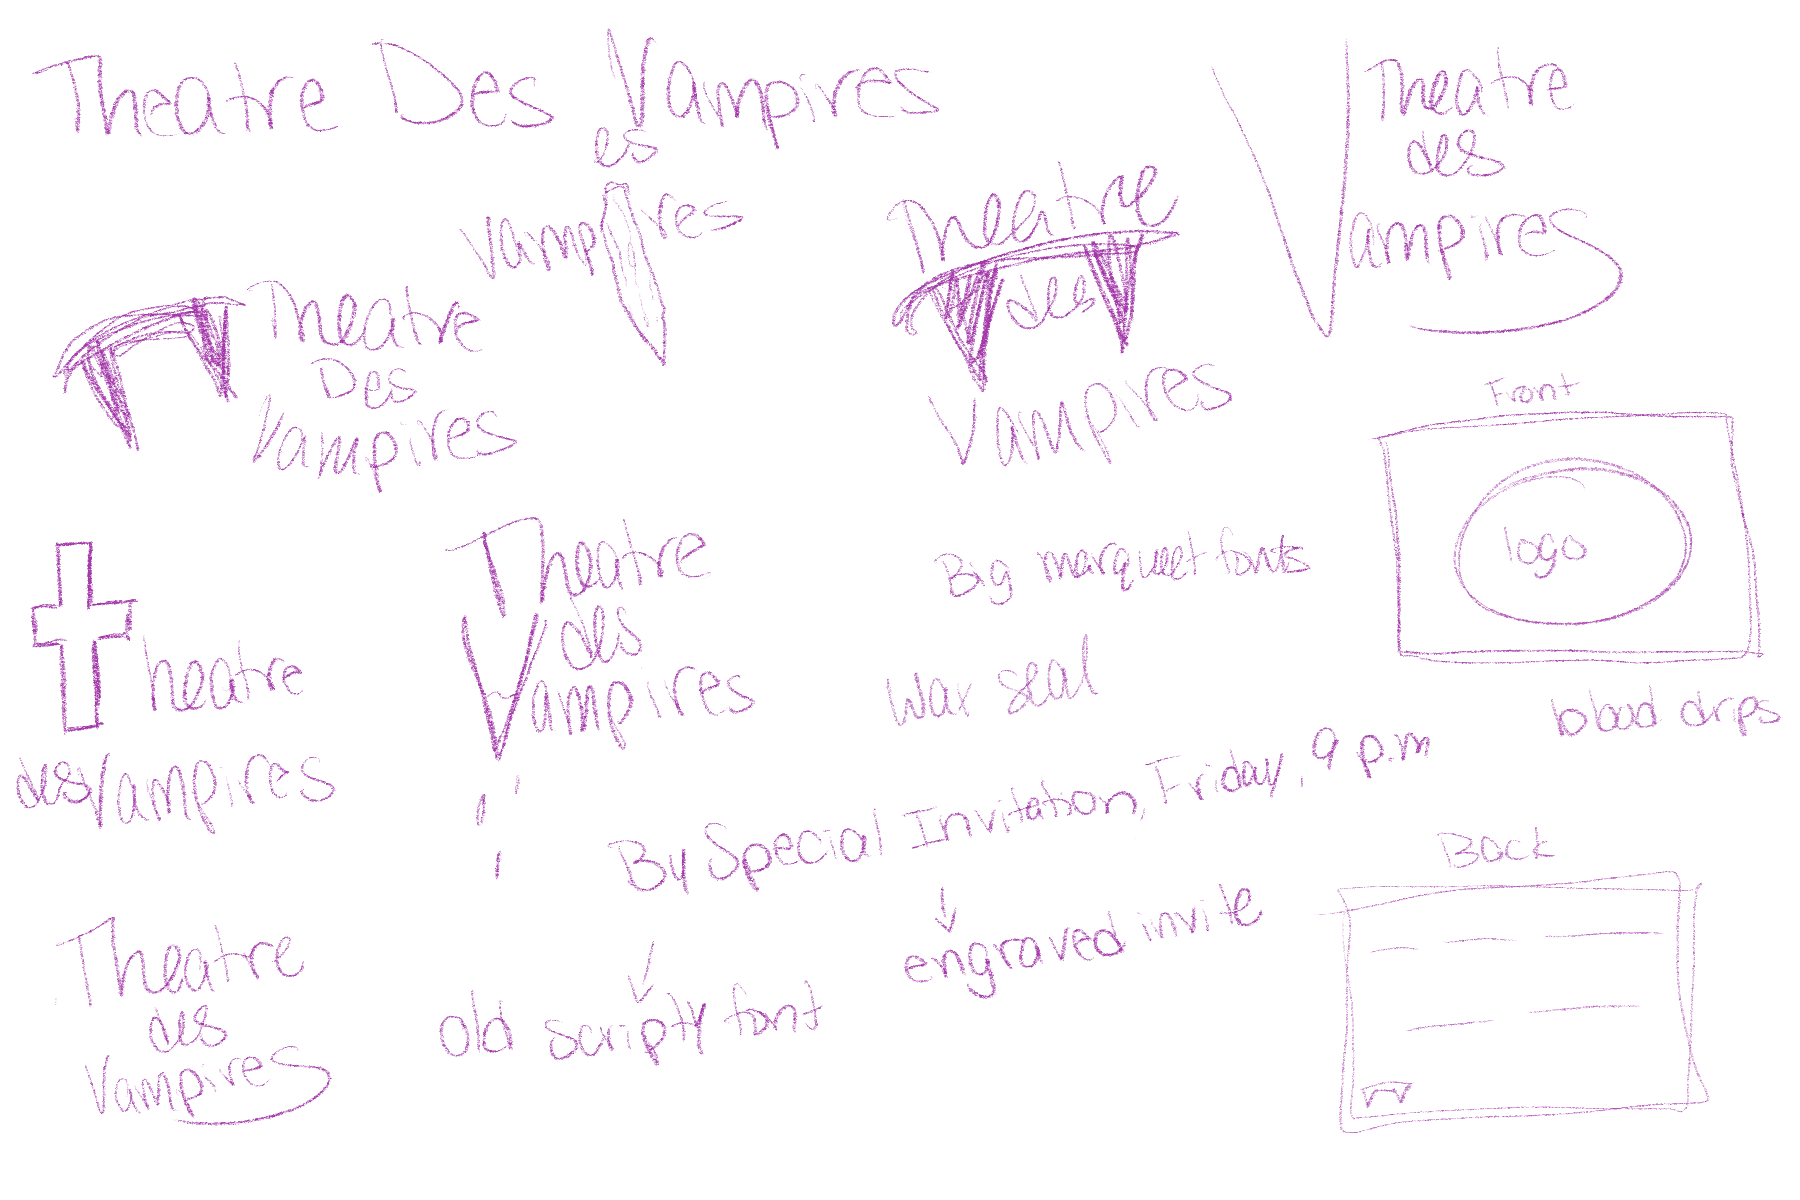 Theatre Des Vampires
es
Vampires
Theatre
des
Vampires
Theatre
des
Vampires
Theatre
Des
Vampires
Front
logo
Theatre
des Vampires
Theatre
des
Vampires
Big marqueet fonts
Wax seal
blood drips
By Special Invitation, Friday, 9 p.m
Back
engraved invite
old scripty font
Theatre
des
Vampires